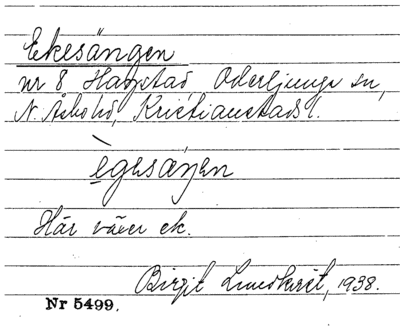 Ekesängen
nr 8 Hagstad Oderljunga sn,
N. Åsbo hd, Kristianstads l.
ègesæŋen
Här växer ek.
Birgit Lundkvist, 1938.
Nr 5499.